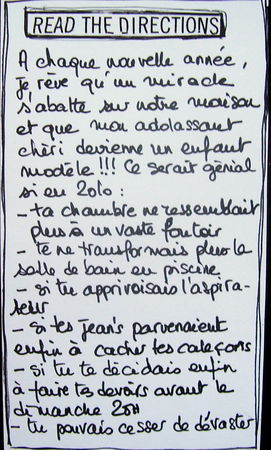 READ THE DIRECTIONS
A chaque nouvelle année,
je rêve qu'un miracle
s'abatte sur notre maison
et que mon adolassant
chéri devienne un enfant
modèle !!! Ce serait génial
si en 2010 :
- ta chambre ne ressemblait
plus à un vaste foutoir
- te ne transformais plus la
salle de bain en piscine
- si tu apprivoisais l'aspira-
teur
- si tes jean's parvenaient
enfin à cacher tes caleçons
- si tu te décidais enfin
à faire tes devoirs avant le
dimanche 20H
- tu pouvais cesser de dévaster